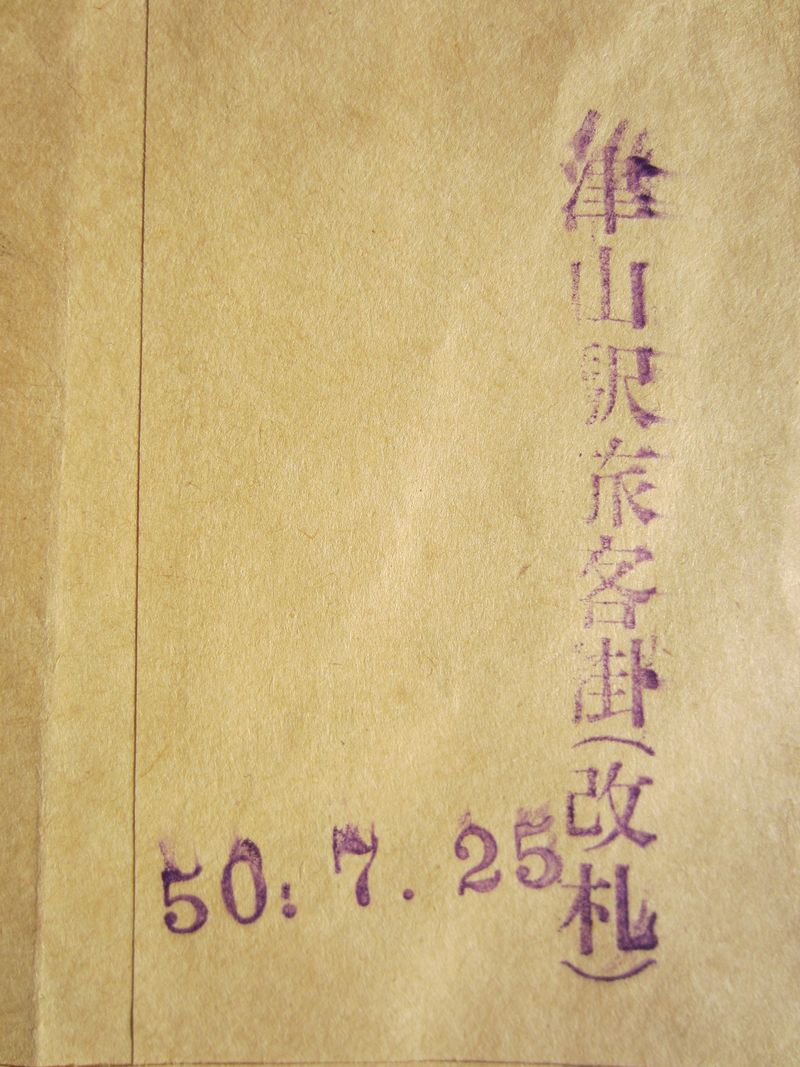 津山駅旅客掛(改札)
50. 7. 25